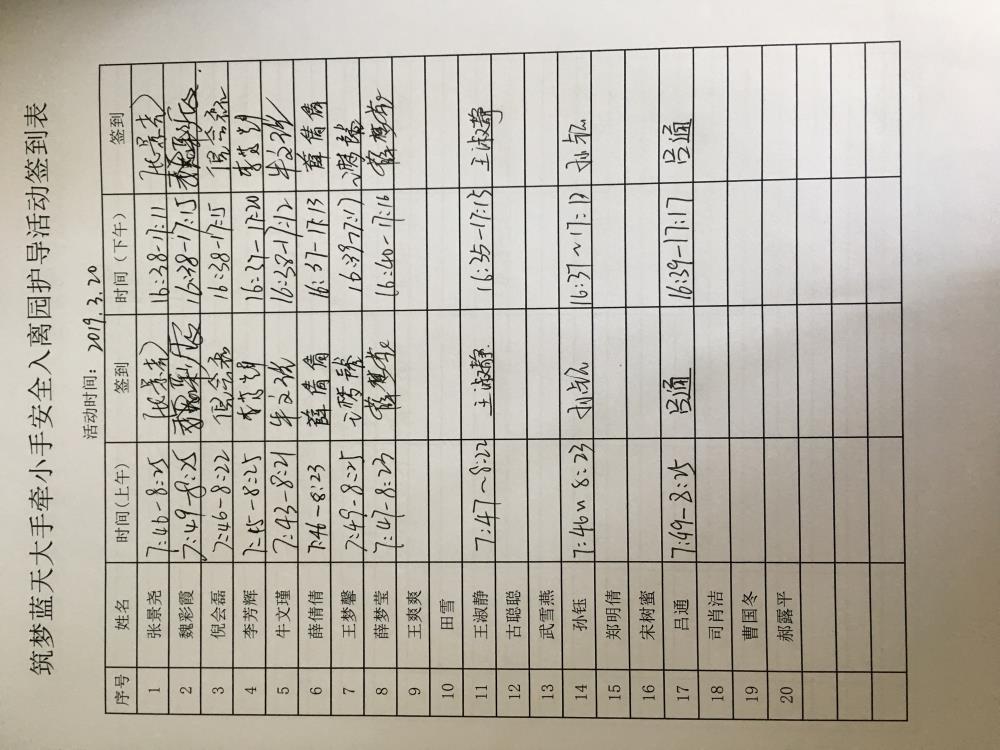 筑梦蓝天大手牵小手安全入离园护导活动签到表
活动时间：2019.3.20
序号 姓名 时间(上午) 签到 时间(下午) 签到
1 张景尧 7:46-8:25 张景尧 16:38-17:11 张景尧
2 魏彩霞 7:49-8:25 魏彩霞 16:38-17:15 魏彩霞
3 倪会磊 7:46-8:22 倪会磊 16:38-17:15 倪会磊
4 李芳辉 7:45-8:25 李芳辉 16:37-17:20 李芳辉
5 牛文瑾 7:43-8:21 牛文瑾 16:38-17:12 牛文瑾
6 薛倩倩 7:46-8:23 薛倩倩 16:37-17:13 薛倩倩
7 王梦馨 7:49-8:25 16:39-17:17
8 薛梦莹 7:47-8:23 薛梦莹 16:40-17:16 薛梦莹
9 王爽爽
10 田雪
11 王淑静 7:47~8:22 王淑静 16:35-17:15 王淑静
12 古聪聪
13 武雪燕
14 孙钰 7:46~8:23 孙钰 16:37~17:17 孙钰
15 郑明倩
16 宋树蜜
17 吕通 7:49-8:25 吕通 16:39-17:17 吕通
18 司肖洁
19 曹国冬
20 郝露平